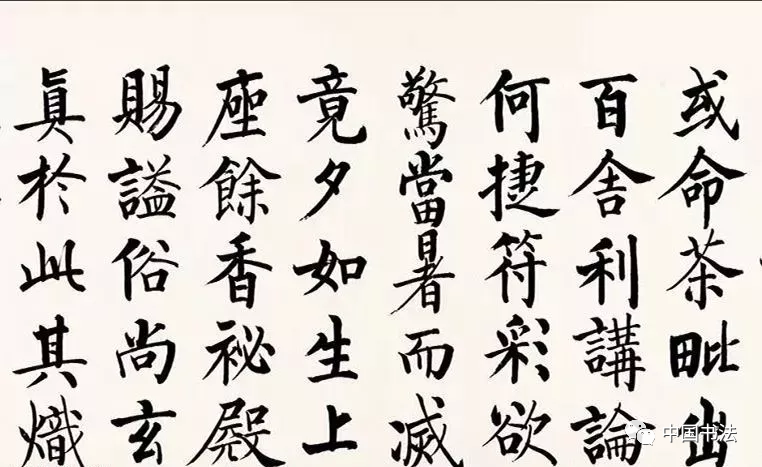 或命茶毗出
百舍利講論
何捷符彩欲
驚當暑而滅
竟夕如生上
座餘香祕殿
賜謚俗尚玄
真於此其熾
中国书法